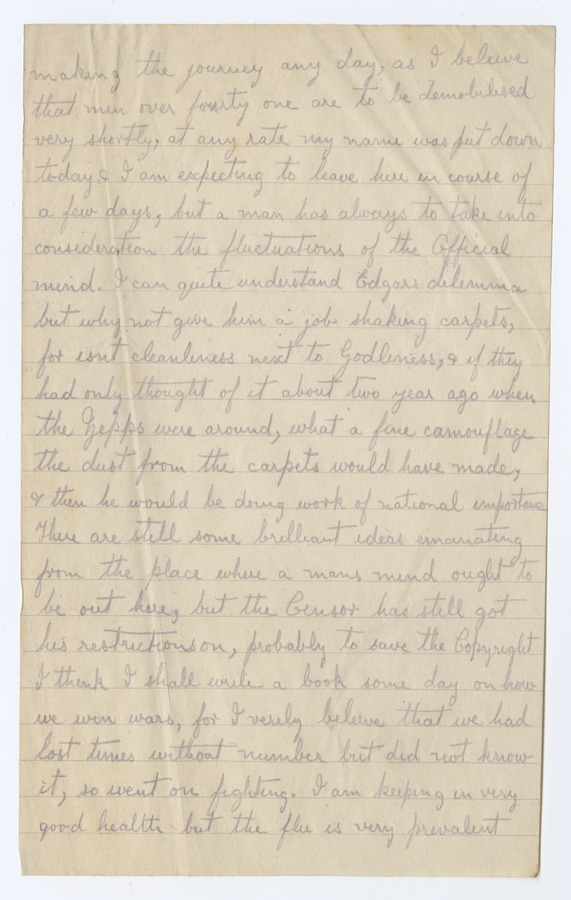 making the journey any day, as I beleive
that men over fourty one are to be demobilised
very shortly, at any rate my name was put down
today & I am expecting to leave here in course of
a few days, but a man has always to take into
consideration the fluctuations of the Official
mind. I can quite understand Edgars dilemma
but why not give him a job shaking carpets,
for isnt cleanliness next to Godleness, & if they
had only thought of it about two year ago when
the Zepps were around, what a fine camouflage
the dust from the carpets would have made,
& then he would be doing work of national importance
There are still some brilliant ideas emanating
from the place where a mans mind ought to
be out here, but the Censor has still got
his restrictions on, probably to save the Copyright
I think I shall write a book some day on how
we won wars, for I verily beleive that we had
lost times without number but did not know
it, so went on fighting. I am keeping in very
good health but the flu is very prevalent